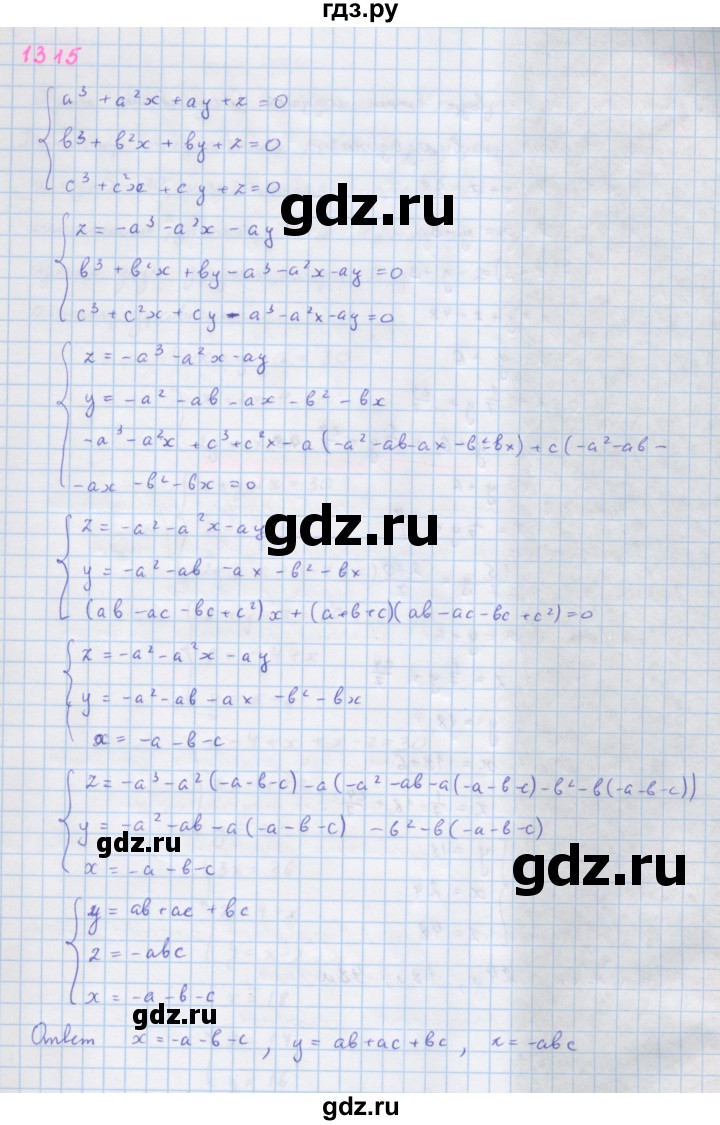 гдз.ру
1315
a³ + a²x + ay + z = 0
b³ + b²x + by + z = 0
c³ + c²x + cy + z = 0
gdz.ru
z = -a³ - a²x - ay
b³ + b²x + by - a³ - a²x - ay = 0
c³ + c²x + cy - a³ - a²x - ay = 0
z = -a³ - a²x - ay
y = -a² - ab - ax - b² - bx
-a³ - a²x + c³ + c²x - a(-a² - ab - ax - b² - bx) + c(-a² - ab -
- ax - b² - bx = 0
gdz.ru
z = -a² - a²x - ay
y = -a² - ab - ax - b² - bx
(ab - ac - bc + c²)x + (a + b + c)(ab - ac - bc + c²) = 0
z = -a² - a²x - ay
y = -a² - ab - ax - b² - bx
x = -a - b - c
z = -a³ - a²(-a - b - c) - a(-a² - ab - a(-a - b - c) - b² - b(-a - b - c))
y = -a² - ab - a(-a - b - c) - b² - b(-a - b - c)
gdz.ru
x = -a - b - c
gdz.ru
y = ab + ac + bc
z = -abc
x = -a - b - c
gdz.ru
Ответ x = -a - b - c, y = ab + ac + bc, z = -abc
gdz.ru